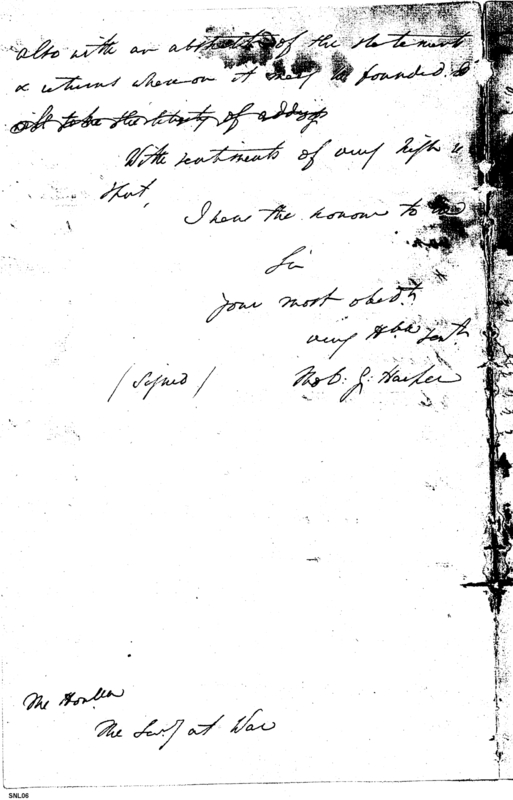 also with an abstract of the statement
& returns whereon it may be founded. &
of adding
With sentiments of very high
that,
I have the honour to be
Sir
your most obedt
very Hble Servt
(Signed) Robt. G. Harper
The Honble
The Secy at War
SNL06